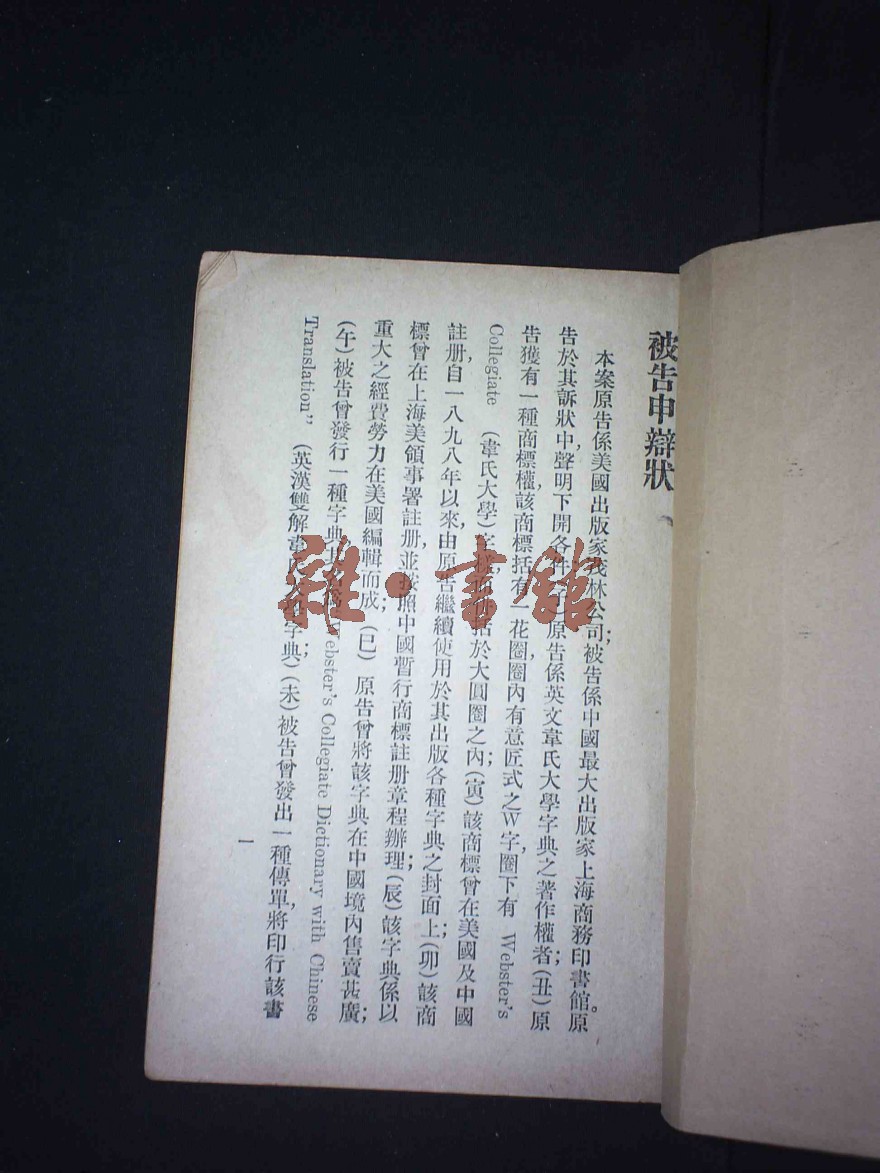 被告申辯狀
本案原告係美國出版家 林公司;被告係中國最大出版家上海商務印書館。原
告於其訴狀中,聲明下開各件 原告係英文韋氏大學字典之著作權者;(丑)原
告獲有一種商標權,該商標括有一花圈,圈內有意匠式之W字,圈下有 Webster's
Collegiate (韋氏大學)字樣, 括於大圓圈之內;(寅)該商標曾在美國及中國
註册,自一八九八年以來,由原告繼續使用於其出版各種字典之封面上;(卯)該商
標曾在上海美領事署註册,並按照中國暫行商標註册章程辦理;(辰)該字典係以
重大之經費勞力在美國編輯而成;(巳)原告曾將該字典在中國境內售賣甚廣;
(午)被告曾發行一種字典,其 Webster's Collegiate Dictionary with Chinese
Translation" (英漢雙解韋 字典);(未)被告曾發出一種傳單,將印行該書
一
雜·書館